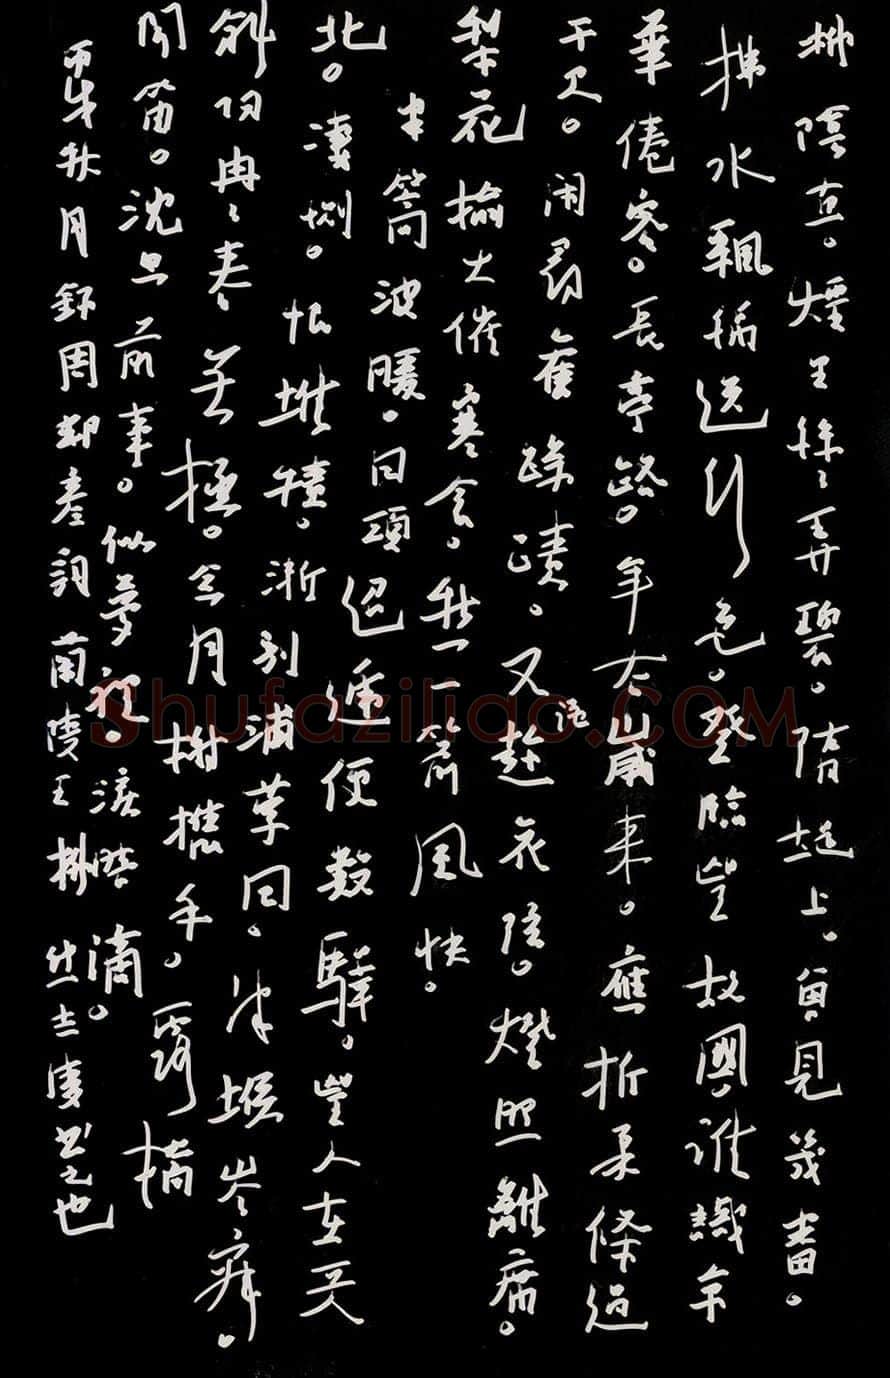 柳陰直。煙里絲〻弄碧。隋堤上。曾見幾番。
拂水飄綿送行色。登臨望故國。誰識京
華倦客。長亭路。年去歲來。應折柔條過
千尺。闲尋舊蹤蹟。又酒趁哀弦。燈照離席。
梨花榆火催寒食。愁一箭風快。
半篙波暖。回頭迢遞便數驛。望人在天
北。凄惻。恨堆積。漸別浦縈回。津堠岑寂。
斜陽冉〻春無極。念月榭攜手。露橋
聞笛。沈思前事。似夢裡。淚暗滴。
丙戌秋月錄周邦彥詞蘭陵王柳 書之也
Shufaziliao.com